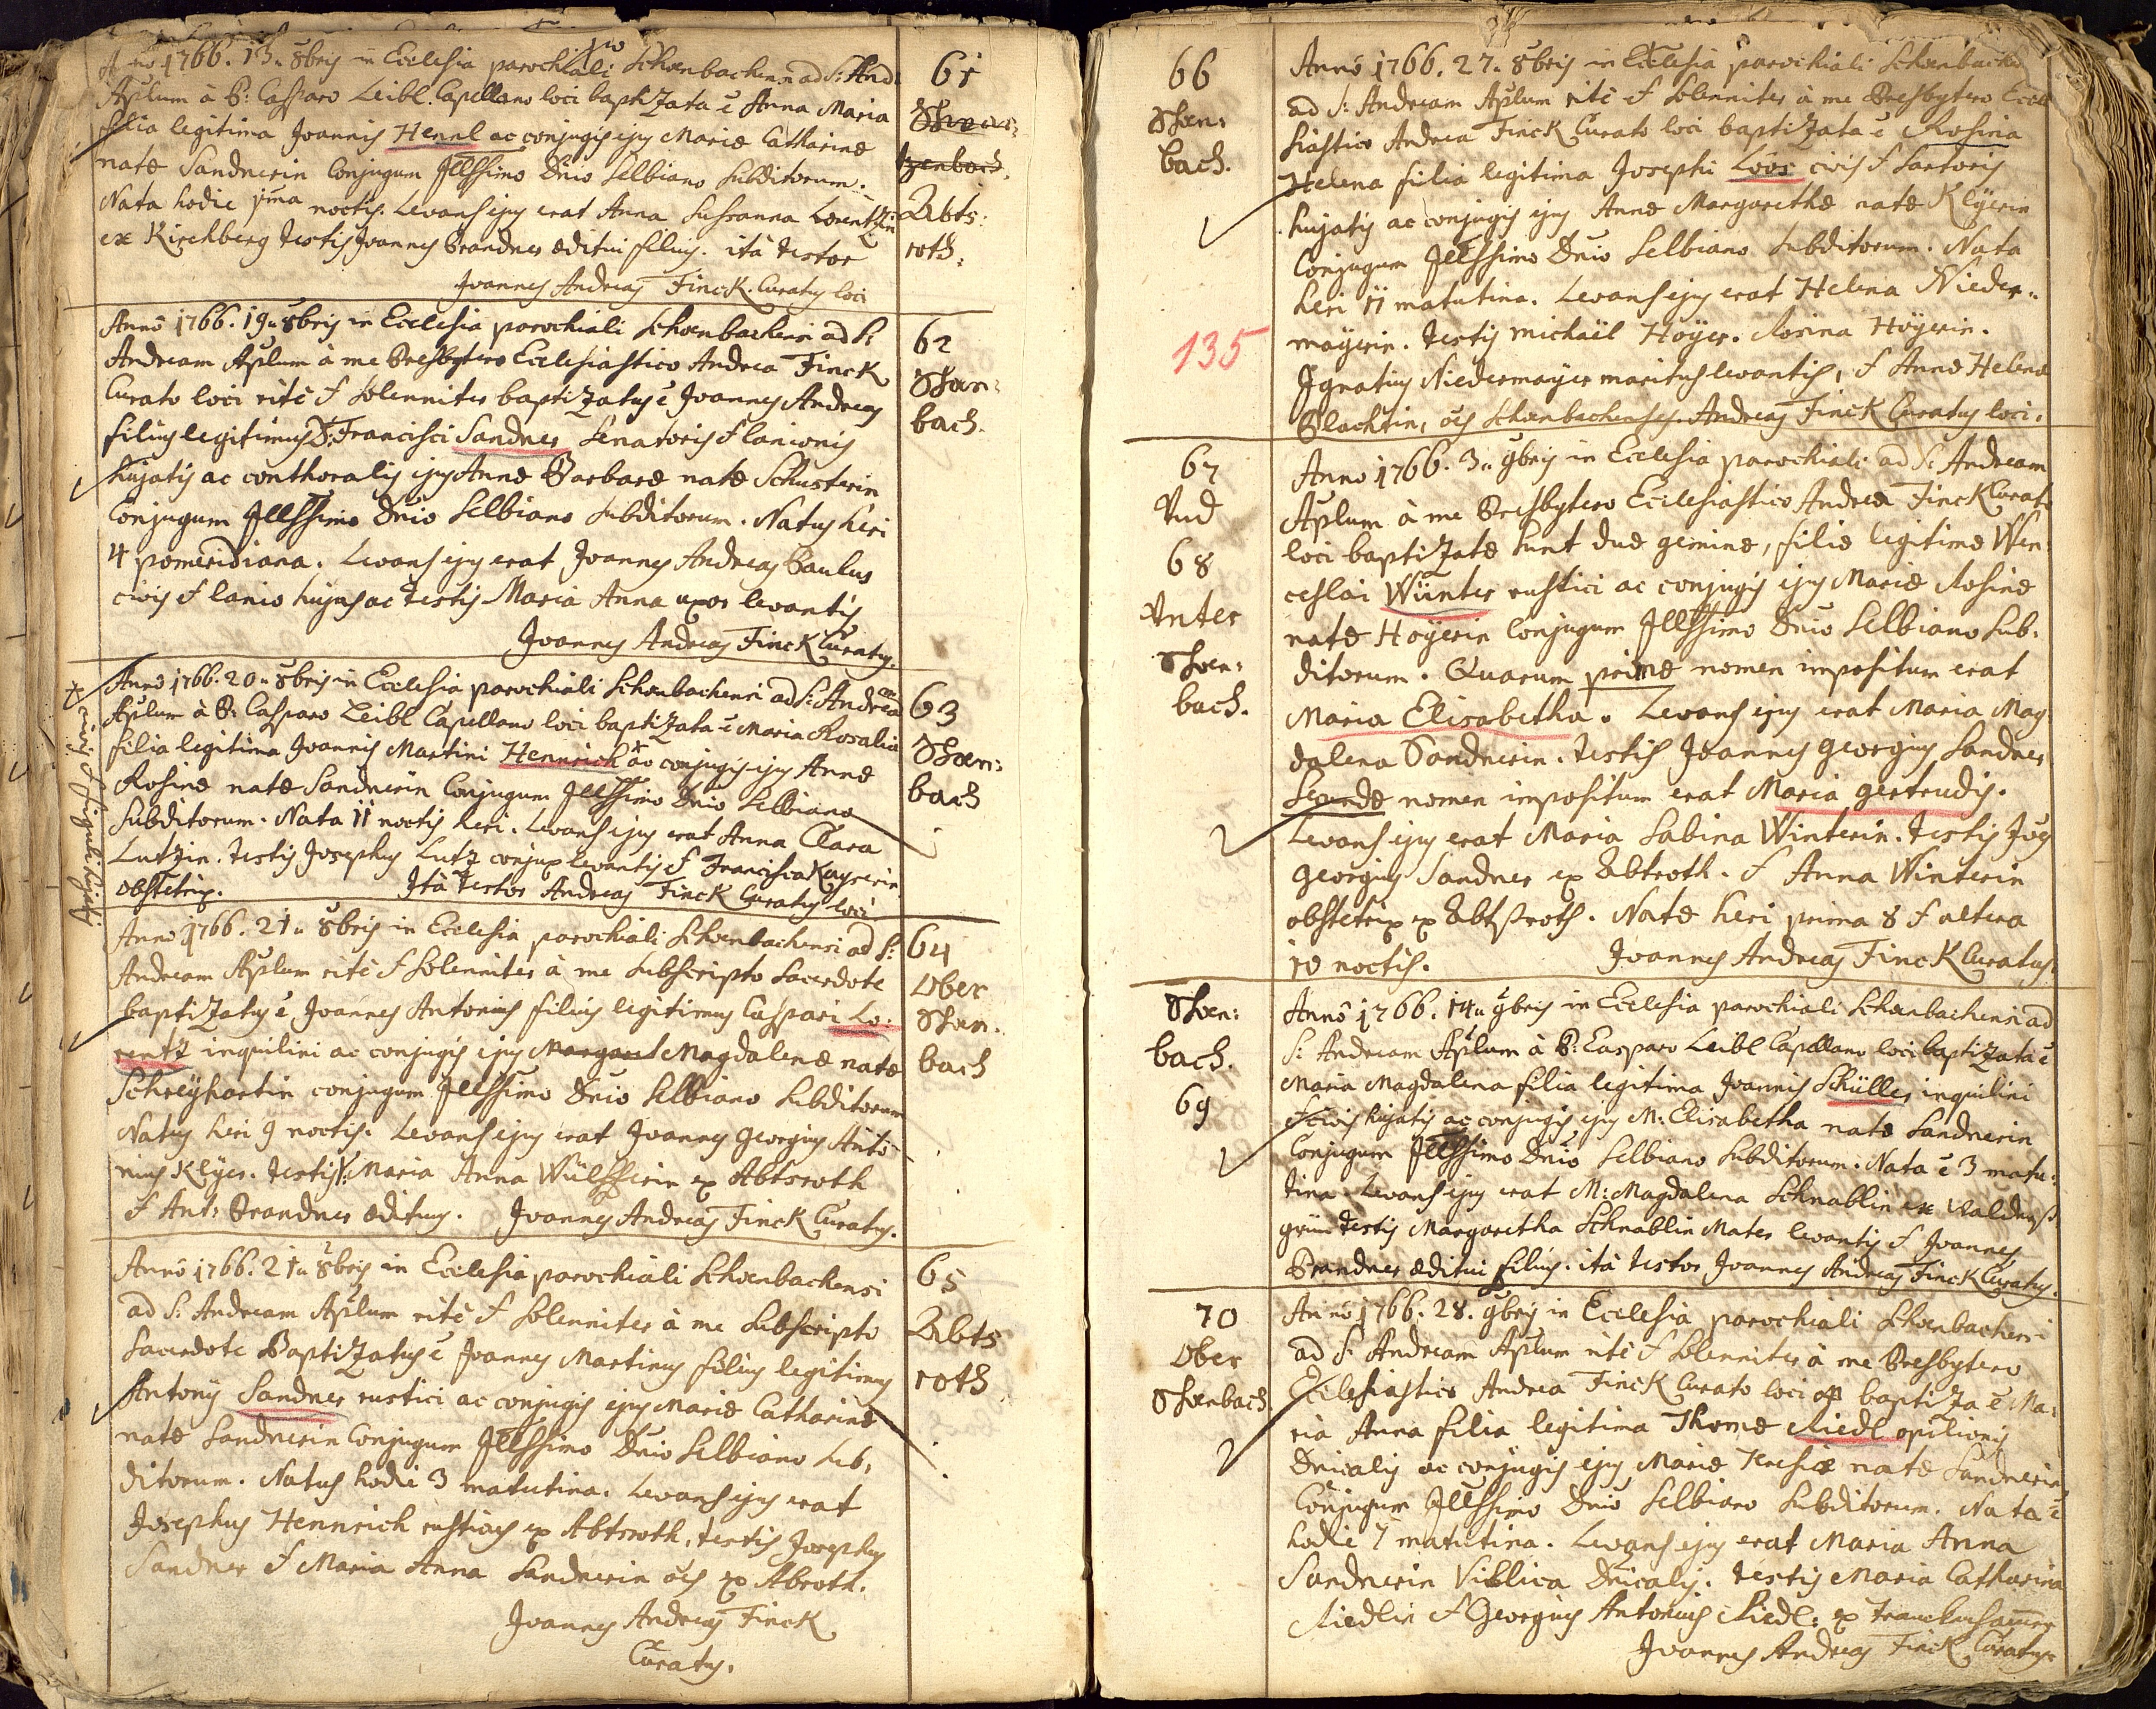 Anno 1766. 13. 8bris in Ecclesia parochiali Schönbachensi ad S: And:
Aplum à P: Casparo Leibl. Capellano loci baptizata ē Anna Maria
filia legitima Joannis Hennl ac conjugis ejus Mariæ Catharinæ
natæ Sandnerin Conjugum Jllssimo Dnio Selbiano Subditorum.
Nata hodie pma noctis. Levans ejus erat Anna Susanna Lorentzin
ex Kirchberg testis Joannes Brandner æditui filius. ità testor
Joannes Andreas Finck. Curatus loci
61
Abts:
roth.
Anno 1766. 19. 8bris in Ecclesia parochiali Schönbachensi ad S:
Andream Aplum à me Presbytero Ecclesiastico Andrea Finck
Curato loci ritè & Solenniter baptizatus ē Joannes Andreas
filius legitimus D: Francisci Sandner Senatoris & lanionis
hujatis ac conthoralis ejus Annæ Barbaræ natæ Schusterin
Conjugum Jllssimo Dnio Selbiano Subditorum. Natus heri
4 pomeridiana. Levans ejus erat Joannes Andreas Paulus
civis & lanio hujas ac testis Maria Anna uxor levantis
Joannes Andreas Finck Curatus.
62
Schön:
bach.
Anno 1766. 20. 8bris in Ecclesia parochiali Schönbachensi ad S: Andream
Aplum à P: Casparo Leibl Capellano loci baptizata ē Maria Rosalia
filia legitima Joannis Martini Hennrich ac conjugis ejus Annæ
Rosinæ natæ Sandnerin Conjugum Jllssimo Dnio Selbiano
Subditorum. Nata 11 noctis heri. Levans ejus erat Anna Clara
Lutzin. testis Josephus Lutz conjux levantis & Francisca Kayserin
obstetrix. Ità testor Andreas Finck Curatus loci
civis & figuli hujatis
63
Schön:
bach
Anno 1766. 21. 8bris in Ecclesia parochiali Schönbachensi ad S:
Andream Aplum ritè & Solenniter à me Subscripto Sacerdote
baptizatus ē Joannes Antonius filius legitimus Caspari Lo:
rentz inquilini ac conjugis ejus Magdalenæ natæ
Schreyhartin conjugum Jllssimo Dnio Selbiano Subditorum
Natus heri 9 noctis. Levans ejus erat Joannes Georgius Anto
nius Klyer. testis V: Maria Anna Wülfferin ex Abtsroth
& Ant: Brandner ædituus. Joannes Andreas Finck Curatus.
64
Ober
Schön:
bach
Anno 1766. 21. 8bris in Ecclesia parochiali Schönbachensi
ad S: Andream Aplum ritè & Solenniter à me Subscripto
Sacerdote Baptizatus ē Joannes Martinus filius legitimus
Antonij Sandner rustici ac conjugis ejus Mariæ Catharinæ
natæ Sandnerin Conjugum Jllssimo Dnio Selbiano Sub:
ditorum. Natus hodie 3 matutina. Levans ejus erat
Josephus Hennrich rusticus ex Abtsroth. testis Josephus
Sandner & Maria Anna Sandnerin oēs ex Abroth.
Joannes Andreas Finck
Curatus.
65
Abts
roth
66
Schön:
bach.
135
Anno 1766. 27. 8bris in Ecclesia parochiali Schönbachensi
ad S: Andream Aplum ritè & Solenniter à me Presbytero Eccle
siastico Andrea Finck Curato loci baptizata ē Rosina
Helena filia legitima Josephi Loos civis & Sartoris
hujatis ac conjugis ejus Annæ Margarethæ natæ Klyerin
Conjugum Jllssimo Dnio Selbiano Subditorum. Nata
heri 11 matutina. Levans ejus erat Helena Nieder:
mayerin. testis Michaël Hoyer. Rosina Hoyerin.
Ignatius Niedermayer maritus levantis, & Anna Helena
Plachtin, oēs Schönbachenses. Andreas Finck Curatus loci.
67
Und
68
Unter
Schön:
bach.
Anno 1766. 3. 9bris in Ecclesia parochiali ad S: Andream
Aplum à me Presbytero Ecclesiastico Andrea Finck Curato
loci baptizatæ sunt duæ geminæ, filiæ legitimæ Wen:
ceslai Winter rustici ac conjugis ejus Mariæ Rosinæ
natæ Hoyerin Conjugum Jllssimo Dnio Selbiano Sub:
ditorum. Quarum primæ nomen impositum erat
Maria Elisabetha. Levans ejus erat Maria Mag
dalena Sandnerin. testis Joannes Georgius Sandner
Secundæ nomen impositum erat Maria gertrudis.
Levans ejus erat Maria Sabina Winterin. testis Joēs
Georgius Sandner ex Abtroth. & Anna Winterin
obstetrix ex Abtsroth. Natæ heri prima 8 & altera
10 noctis. Joannes Andreas Finck Curatus.
Schön:
bach.
69
Anno 1766. 14. 9bris in Ecclesia parochiali Schönbachensi ad
S: Andream Aplum à P: Casparo Leibl Capellano loci baptizata ē
Maria Magdalena filia legitima Joannis Schüller inquilini
& civis hujatis ac conjugis ejus M: Elisabetha natæ Sandnerin
Conjugum Jllssimo Dnio Selbiano Subditorum. Nata ē 3 matu:
tina. Levans ejus erat M: Magdalena Schnablin ex Waldurs
grün testis Margaretha Schnablin Mater levantis & Joannes
Brandner æditui filius. ità testor Joannes Andreas Finck Curatus.
70
Ober
Schönbach
Anno 1766. 28. 9bris in Ecclesia parochiali Schönbachensi
ad S: Andream Aplum ritè & Solenniter à me Presbytero
Ecclesiastico Andrea Finck Curato loci baptiza ē Ma:
ria Anna filia legitima Thomæ Riedl opilionis
Dnicalis ac conjugis ejus Mariæ Teresiæ natæ Sandnerin
Conjugum Jllssimo Dnio Selbiano Subditorum. Nata ē
hodie 7 matutina. Levans ejus erat Maria Anna
Sandnerin Villica Dnicalis. testis Maria Catharina
Riedlin & Georgius Antonius Riedl: ex
Joannes Andreas Finck Curatus